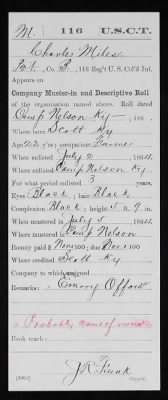 M. 116 U.S.C.T.
Charles Miles
Pvt., Co. B, 116 Reg't U. S. Col'd Inf.
Appears on
Company Muster-in and Descriptive Roll
of the organization named above. Roll dated
Camp Nelson Ky , 186 .
Where born Scott Ky
Age 22 y'rs; occupation Farmer
When enlisted July 2, 1864.
Where enlisted Camp Nelson Ky
For what period enlisted 3 years.
Eyes Black; hair Black
Complexion Black; height 5 ft. 9 in.
When mustered in July 5, 1864.
Where mustered in Camp Nelson
Bounty paid $ None 100; due $ None 100
Where credited Scott Ky
Company to which assigned
Remarks: Emory Offord
Probably name of owner
Book mark:
J. R. Funk
Copyist.